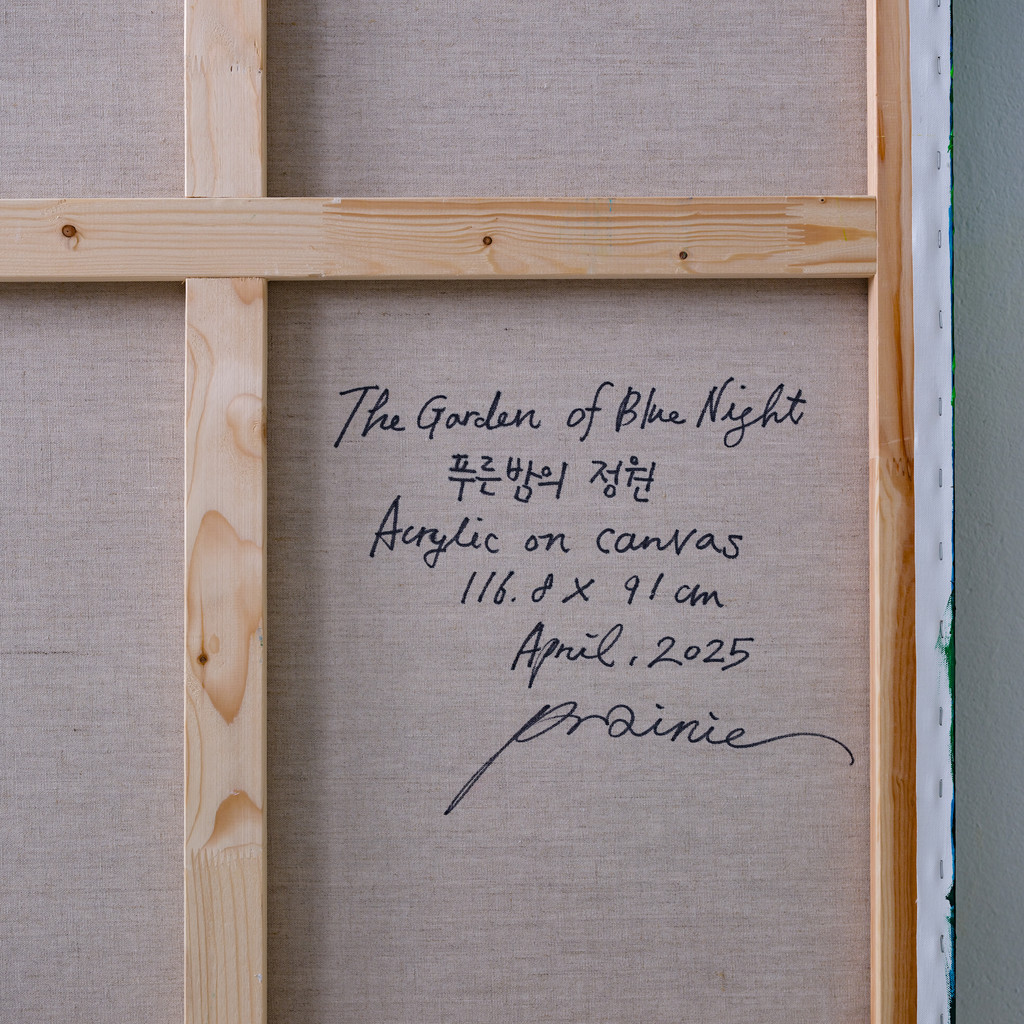 The Garden of Blue Night
푸른밤의 정원
Acrylic on canvas
116.8 x 91 cm
April. 2025
prairie